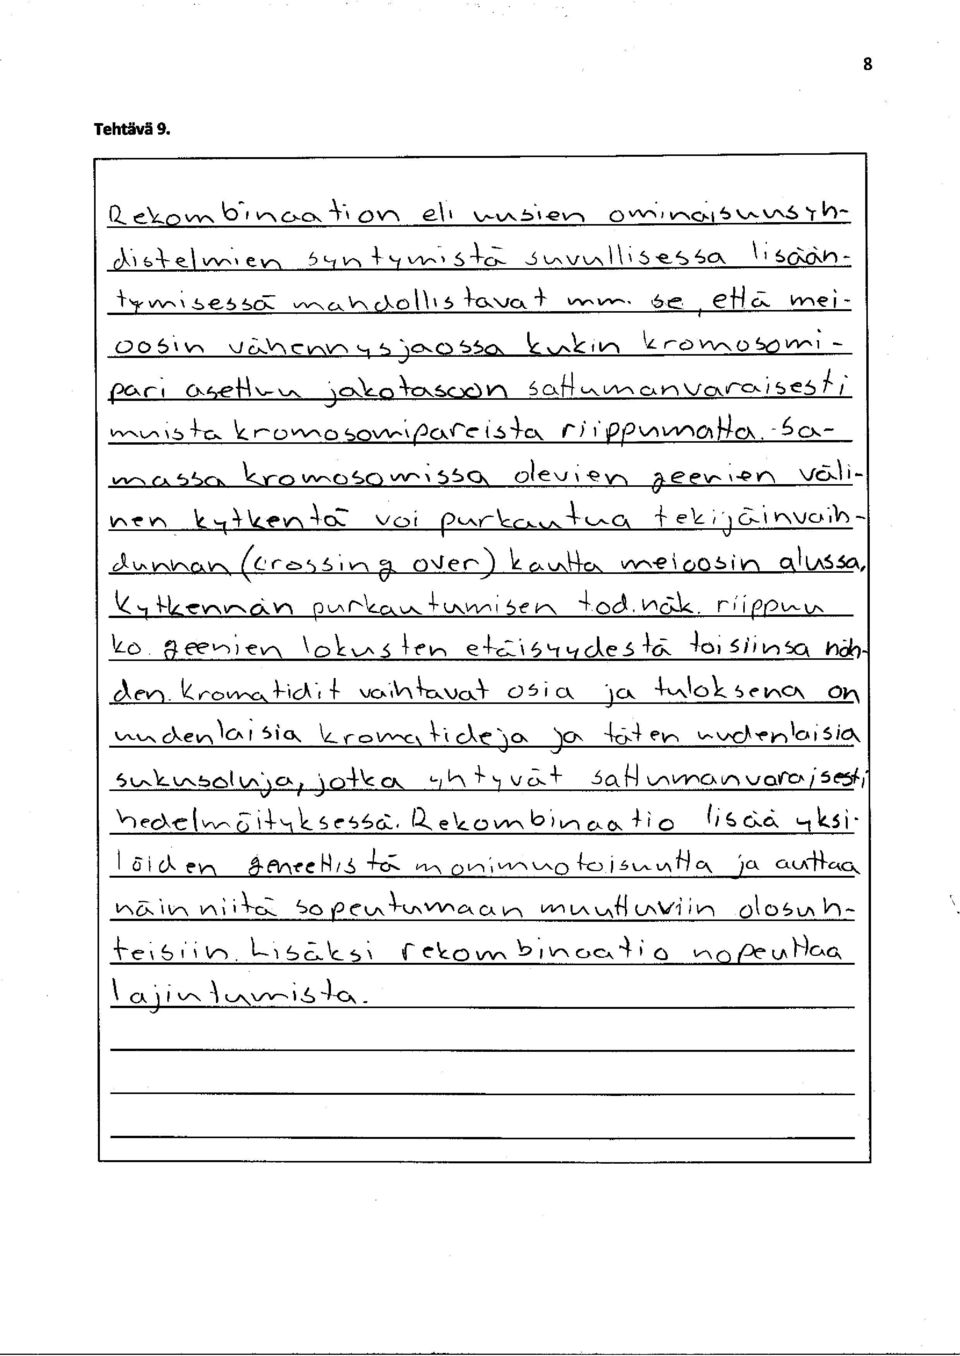 8
Tehtävä 9.
Rekombinaation eli uusien ominaisuusyh-
distelmien syntymistä suvullisessa lisään-
tymisessä mahdollistavat mm. se, että mei-
oosin vähennysjaossa kukin kromosomi-
pari asettuu jakotasoon sattumanvaraisesti
muista kromosomipareista riippumatta. Sa-
massa kromosomissa olevien geenien väli-
nen kytkentä voi purkautua tekijäinvaih-
dunnan (crossing over) kautta meioosin alussa,
Kytkennän purkautumisen tod.näk. riippuu
ko. geenien lokusten etäisyydestä toisiinsa näh-
den. Kromatidit vaihtavat osia ja tuloksena on
uudenlaisia kromatideja ja täten uudenlaisia
sukusoluja, jotka yhtyvät sattumanvaraisesti
hedelmöityksessä. Rekombinaatio lisää yksi-
löiden geneettistä monimuotoisuutta ja auttaa
näin niitä sopeutumaan muuttuviin olosuh-
teisiin. Lisäksi rekombinaatio nopeuttaa
lajiutumista.